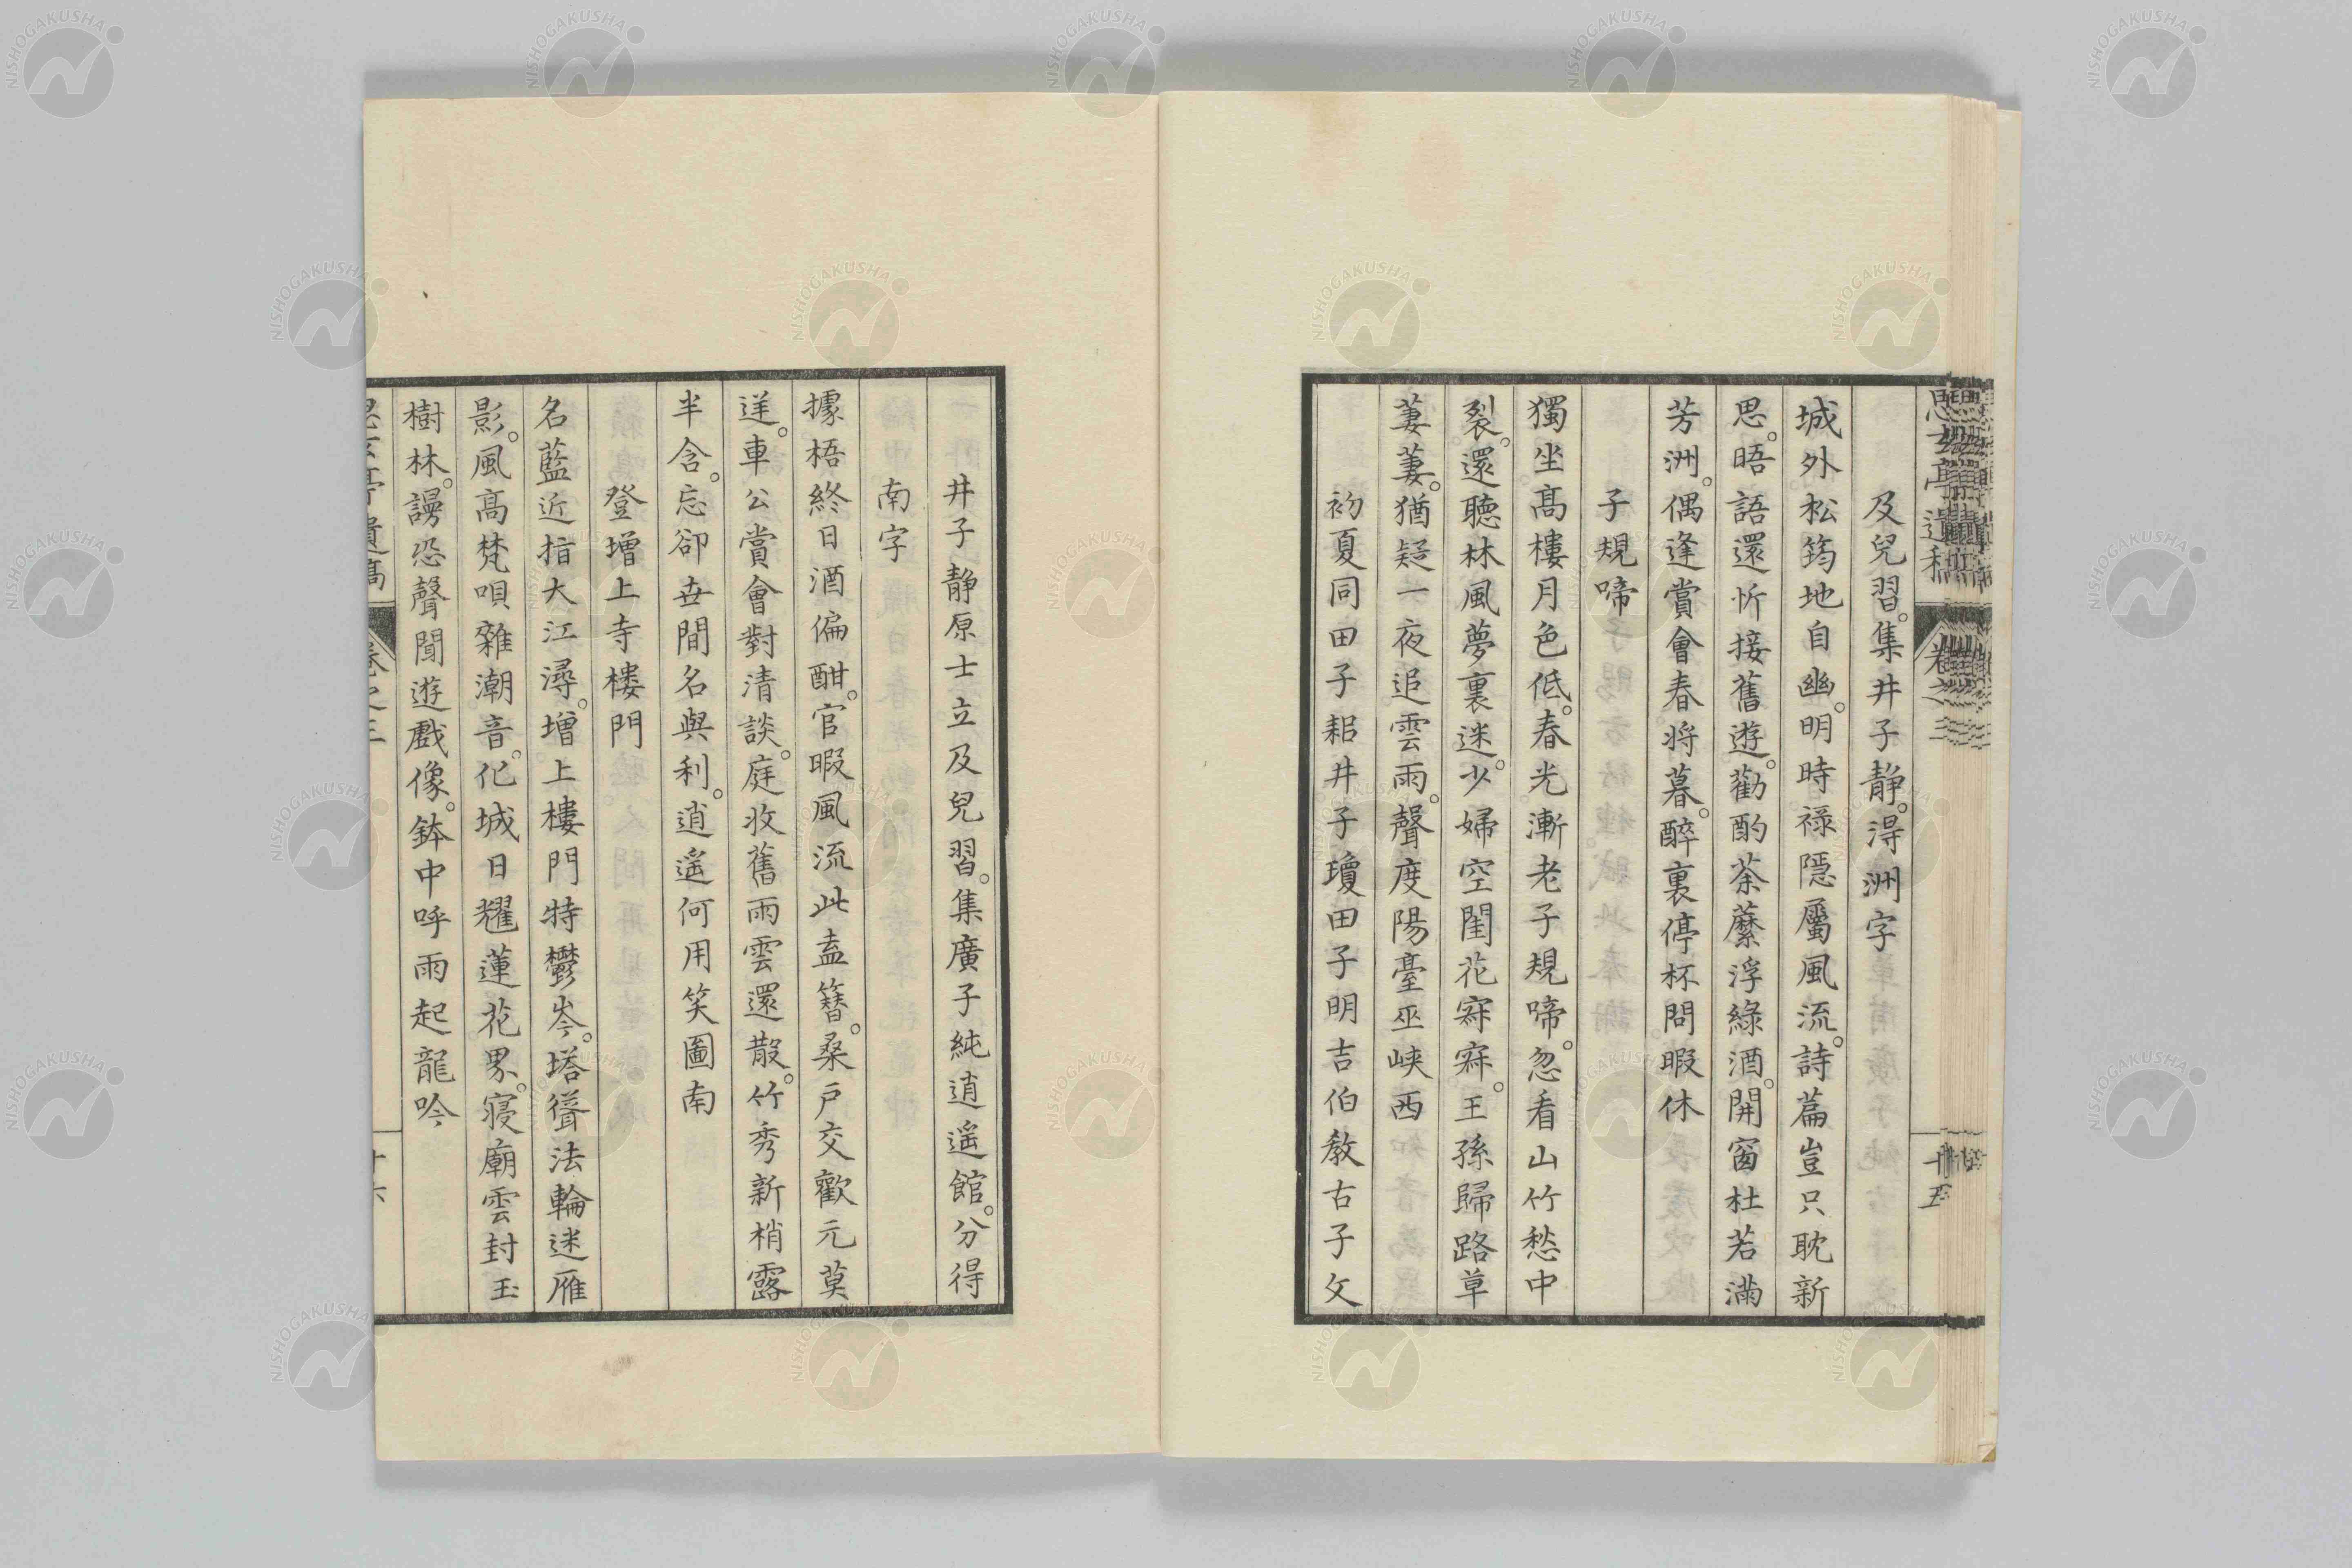 及兒習。集井子靜。得洲字
城外松筠地自幽。明時祿隱屬風流。詩篇豈只耽新
思。晤語還忻接舊遊。勸酌荼蘼浮綠酒。開窗杜若滿
芳洲。偶逢賞會春將暮。醉裏停杯問暇休
子規啼
獨坐高樓月色低。春光漸老子規啼。忽看山竹愁中
裂。還聽林風夢裏迷。少婦空閨花寂寂。王孫歸路草
萋萋。猶疑一夜追雲雨。聲度陽臺巫峽西
初夏同田子耜井子瓊田子明吉伯教古子文
井子靜原士立及兒習。集廣子純逍遥館。分得
南字
據梧終日酒偏酣。官暇風流此盍簪。桑戶交歡元莫
逆。車公賞會對清談。庭收舊雨雲還散。竹秀新梢露
半含。忘卻世間名與利。逍遥何用笑圖南
登增上寺楼門
名藍近指大江潯。增上樓門特鬱岑。塔聳法輪迷雁
影。風高梵唄雜潮音。化城日耀蓮花界。寢廟雲封玉
樹林。謾恐聲聞遊戲像。鉢中呼雨起龍吟
十六
NISHOGAKUSHA